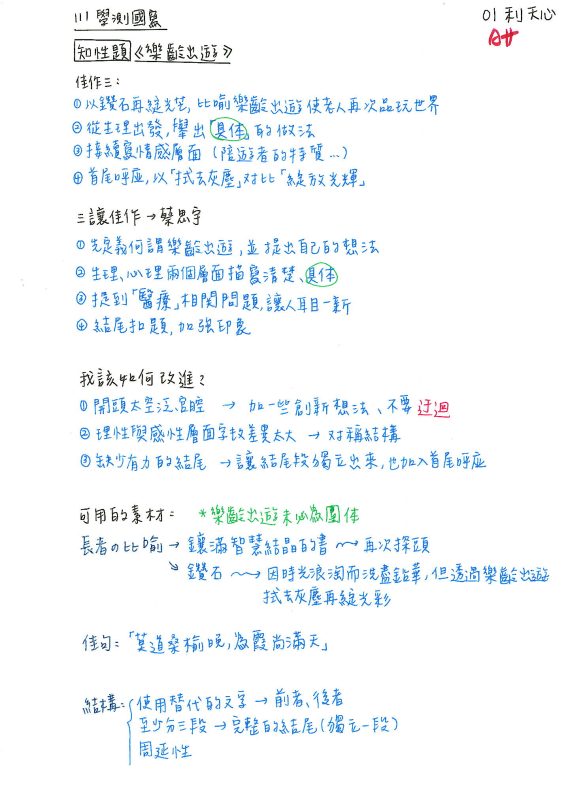 111 學測國寫
01 利天心
A++
知性題《樂齡出遊》
佳作三：
① 以鑽石再綻光芒，比喻樂齡出遊使老人再次品玩世界
② 從生理出發，舉出「具体」的做法
③ 接續寫情感層面（陪遊者的特質…）
④ 首尾呼應，以「拭去灰塵」對比「綻放光輝」
三讓佳作→蔡思宇
① 先定義何謂樂齡出遊，並提出自己的想法
② 生理、心理兩個層面描寫清楚、具体
③ 提到「醫療」相關問題，讓人耳目一新
④ 結尾扣題，加強印象
我該如何改進？
① 開頭太空泛、官腔 → 加一些創新想法、不要迂迴
② 理性與感性層面字數差異太大 → 對稱結構
③ 缺少有力的結尾 → 讓結尾段獨立出來，也加入首尾呼應
可用的素材： *樂齡出遊未必為團体
長者の比喻→ 鑲滿智慧結晶的書 ⟿ 再次探頭
↘ 鑽石 ⟿ 因時光浪淘而洗盡鉛華，但透過樂齡出遊
拭去灰塵再綻光彩
佳句：「莫道桑榆晚，為霞尚滿天」
結構： 使用替代的文字 → 前者、後者
至少分三段 → 完整的結尾（獨立一段）
周延性